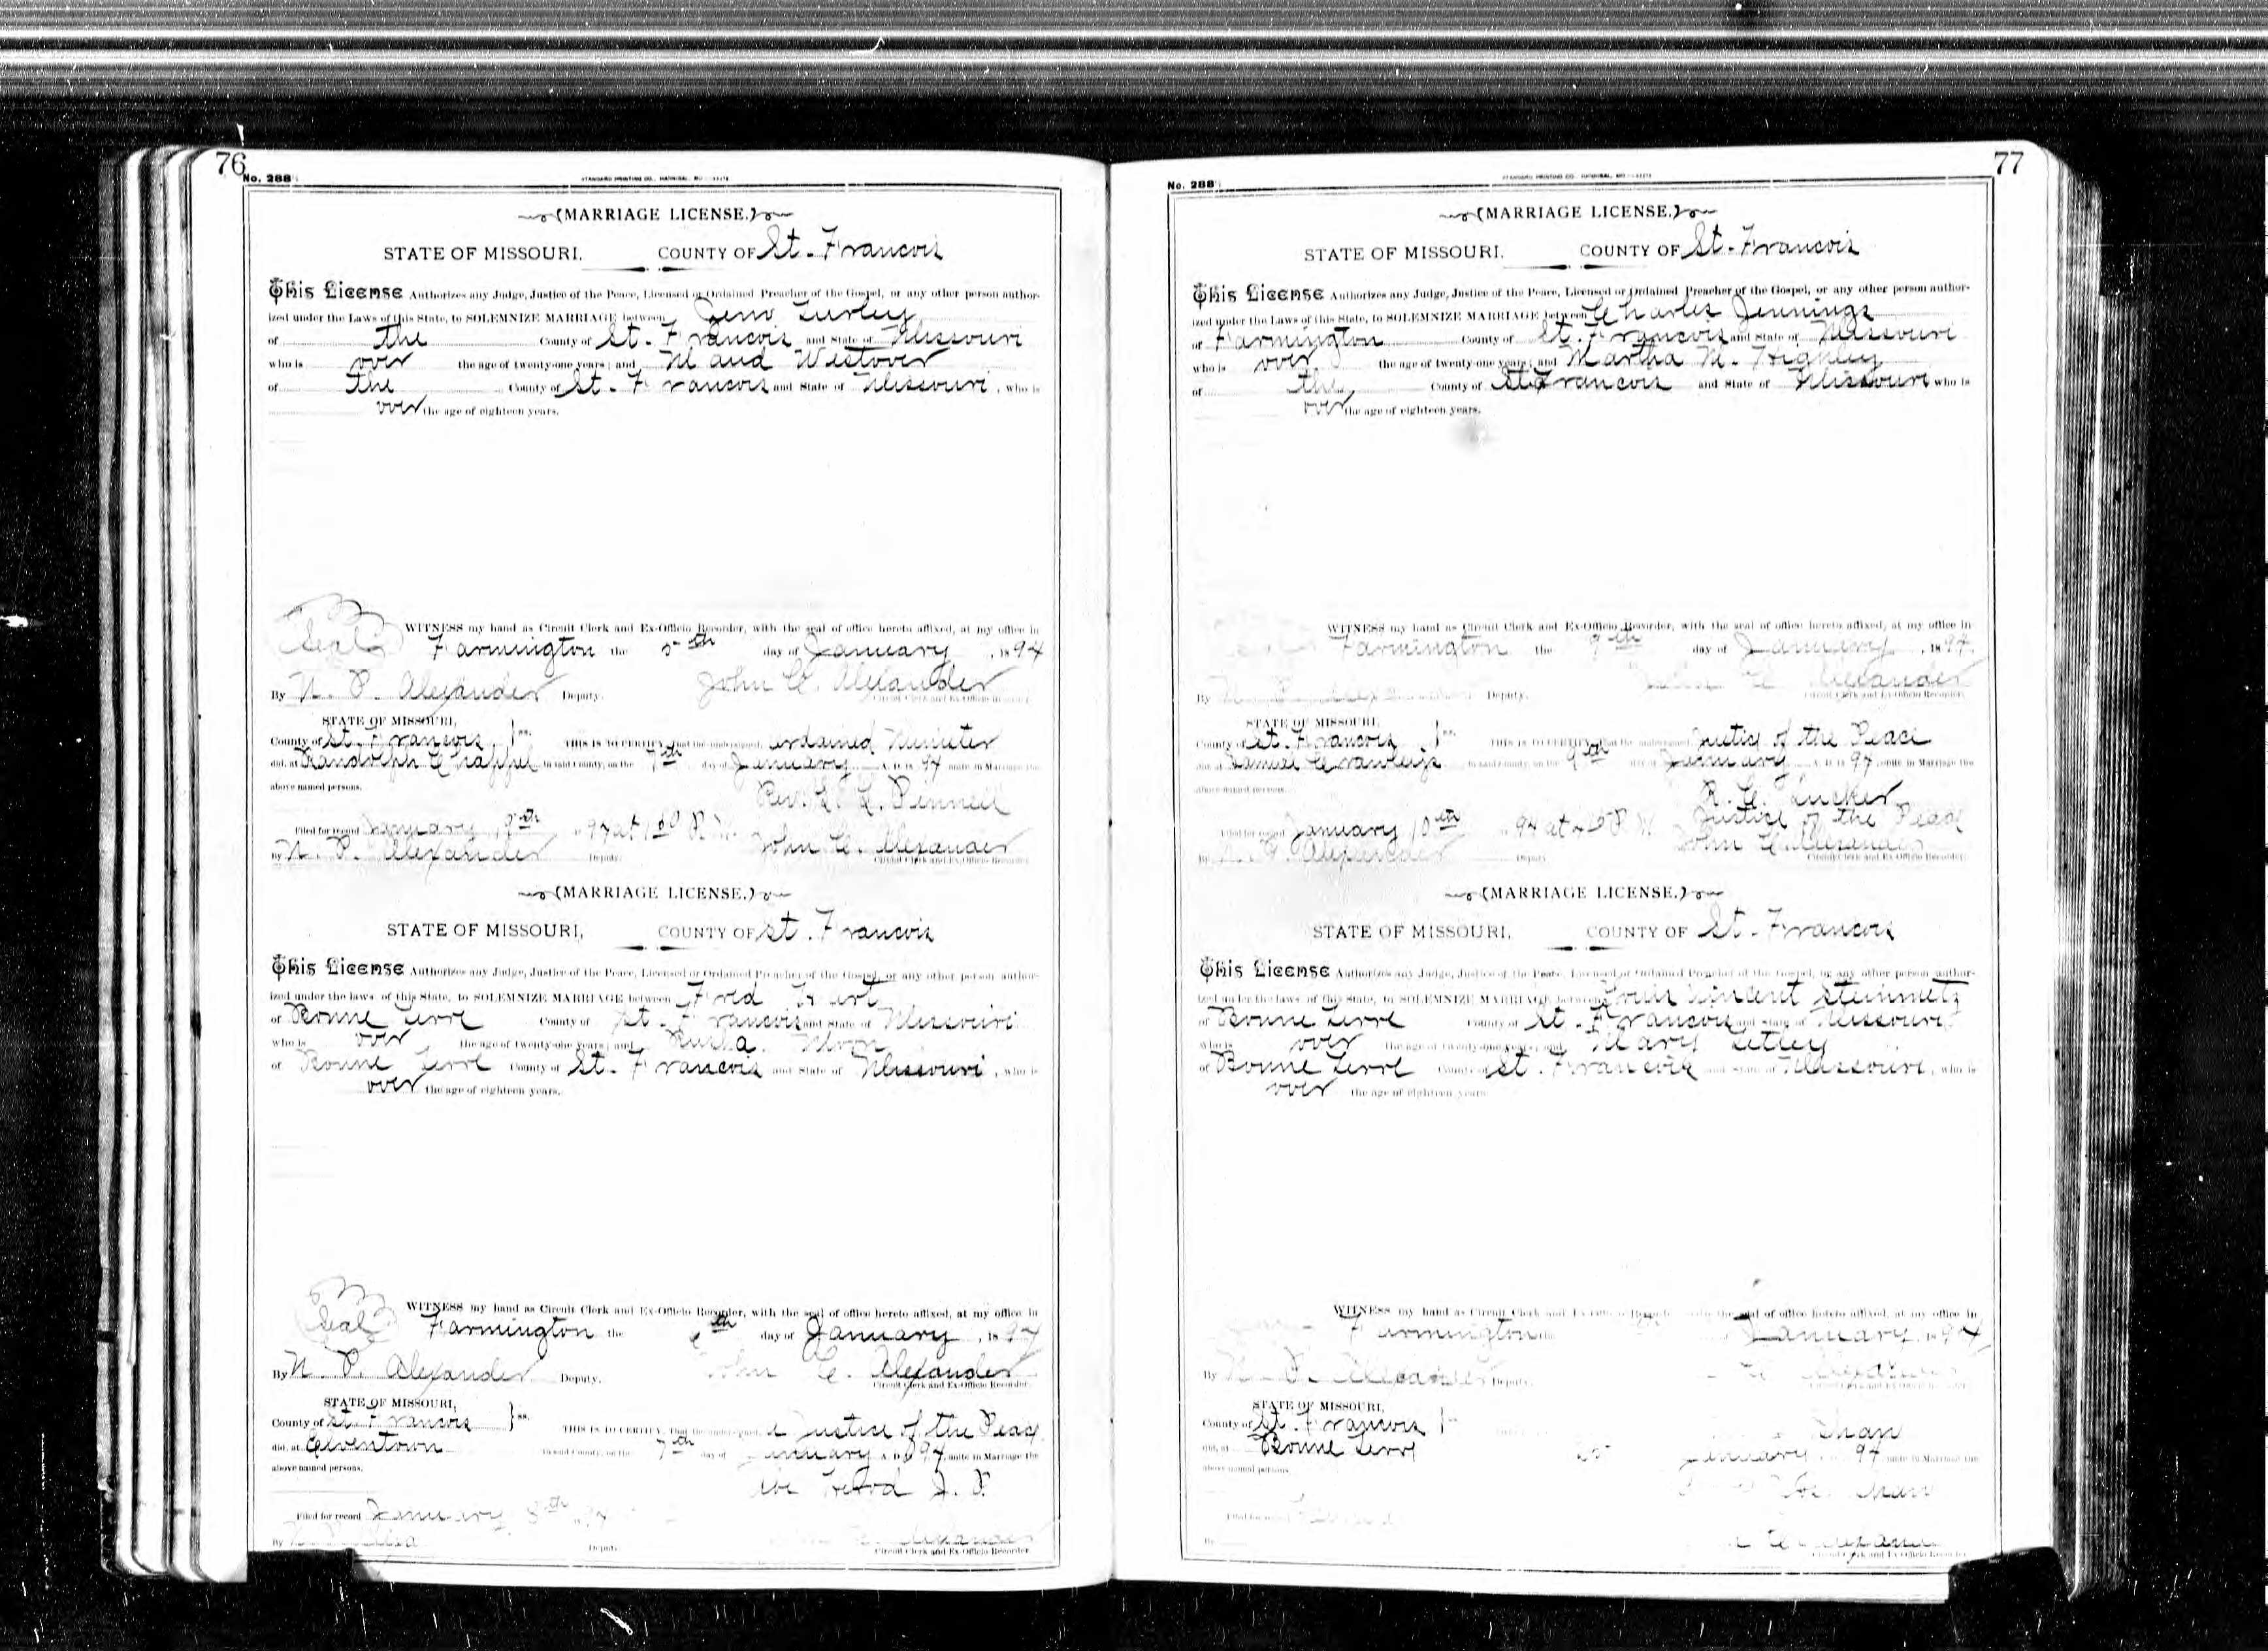 76
No. 288
(MARRIAGE LICENSE.)
STATE OF MISSOURI, COUNTY OF St. Francois
This License Authorizes any Judge, Justice of the Peace, Licensed or Ordained Preacher of the Gospel, or any other person author-
ized under the Laws of this State, to SOLEMNIZE MARRIAGE between Zeno Turley
of the County of St. Francois and State of Missouri
who is over the age of twenty-one years; and Maud Westover
of the County of St. Francois and State of Missouri, who is
over the age of eighteen years.
WITNESS my hand as Circuit Clerk and Ex-Officio Recorder, with the seal of office hereto affixed, at my office in
Seal Farmington the 5th day of January, 1894
By N. P. Alexander Deputy. John C. Alexander
Circuit Clerk and Ex-Officio Recorder
STATE OF MISSOURI,
County of St. Francois ss. THIS IS TO CERTIFY, That the undersigned, ordained Minister
did, at Randolph Chappel in said County, on the 7th day of January A. D. 1894 unite in Marriage the
above named persons. Rev.
Pennell
Filed for record January 94 at
By N. P. Alexander Deputy. John C. Alexander
Circuit Clerk and Ex-Officio Recorder
(MARRIAGE LICENSE.)
STATE OF MISSOURI, COUNTY OF St. Francois
This License Authorizes any Judge, Justice of the Peace, Licensed or Ordained Preacher of the Gospel, or any other person author-
ized under the laws of this State, to SOLEMNIZE MARRIAGE between Fred
of Bonne Terre County of St. Francois and State of Missouri
who is over the age of twenty-one years; and
of Bonne Terre County of St. Francois and State of Missouri, who is
over the age of eighteen years.
WITNESS my hand as Circuit Clerk and Ex-Officio Recorder, with the seal of office hereto affixed, at my office in
Seal Farmington the 6th day of January, 1894
By N. P. Alexander Deputy. John C. Alexander
Circuit Clerk and Ex-Officio Recorder
STATE OF MISSOURI,
County of St. Francois ss. THIS IS TO CERTIFY, That the undersigned, a Justice of the Peace
did, at Elventown in said County, on the 7th day of January A. D. 1894, unite in Marriage the
above named persons. J. P.
Filed for record January 8th
By Deputy. Alexander
Circuit Clerk and Ex-Officio Recorder.
77
No. 288
(MARRIAGE LICENSE.)
STATE OF MISSOURI, COUNTY OF St. Francois
This License Authorizes any Judge, Justice of the Peace, Licensed or Ordained Preacher of the Gospel, or any other person author-
ized under the Laws of this State, to SOLEMNIZE MARRIAGE between Charles Jennings
of Farmington County of St. Francois and State of Missouri
who is over the age of twenty-one years; and Martha M. Highley
of the County of St Francois and State of Missouri who is
over the age of eighteen years.
WITNESS my hand as Circuit Clerk and Ex-Officio Recorder, with the seal of office hereto affixed, at my office in
Farmington the 9th day of January, 1894.
By N. P. Alexander Deputy. John C. Alexander
Circuit Clerk and Ex-Officio Recorder
STATE OF MISSOURI,
County of St. Francois ss. THIS IS TO CERTIFY, That the undersigned Justice of the Peace
did, at Samuel Crawleys in said county, on the 9th day of January A. D. 1894, unite in Marriage the
above named persons. R. C. Tucker
Justice of the Peace
Filed for record January 10th 94 at
By N. P. Alexander Deputy John C. Alexander
Circuit Clerk and Ex-Officio Recorder.
(MARRIAGE LICENSE.)
STATE OF MISSOURI, COUNTY OF St. Francois
This License Authorizes any Judge, Justice of the Peace, Licensed or Ordained Preacher of the Gospel, or any other person author-
ized under the laws of this State, to SOLEMNIZE MARRIAGE between Louis Vincent Steinmetz
of Bonne Terre County of St. Francois and State of Missouri
who is over the age of twenty-one years; and Mary Letley
of Bonne Terre County of St. Francois and State of Missouri, who is
over the age of eighteen years
WITNESS my hand as Circuit Clerk and Ex-Officio Recorder with the seal of office hereto affixed, at my office in
Farmington the January, 1894
By N. P. Alexander Deputy.
STATE OF MISSOURI,
County of St. Francois
did, at Bonne Terre January 94 unite in Marriage the
above named persons
Filed for record
By
Circuit Clerk and Ex-Officio Recorder